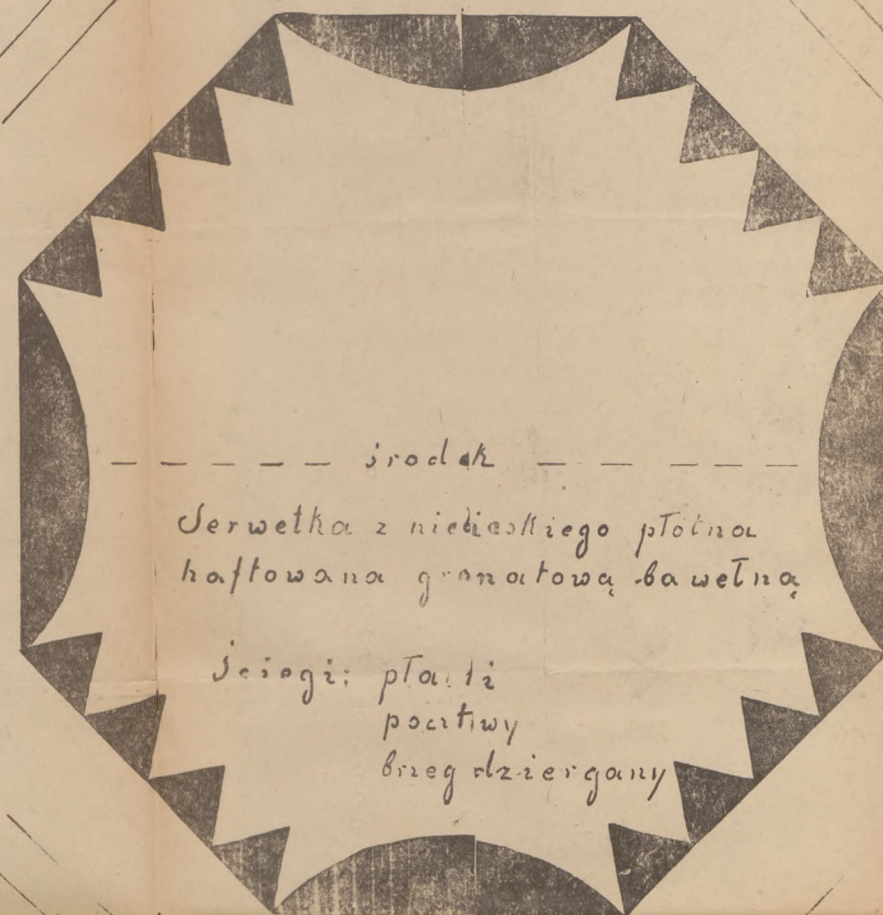 środek
Serwetka z niebieskiego płótna
haftowana granatową bawełną
ściegi: płaski
brzeg dziergany